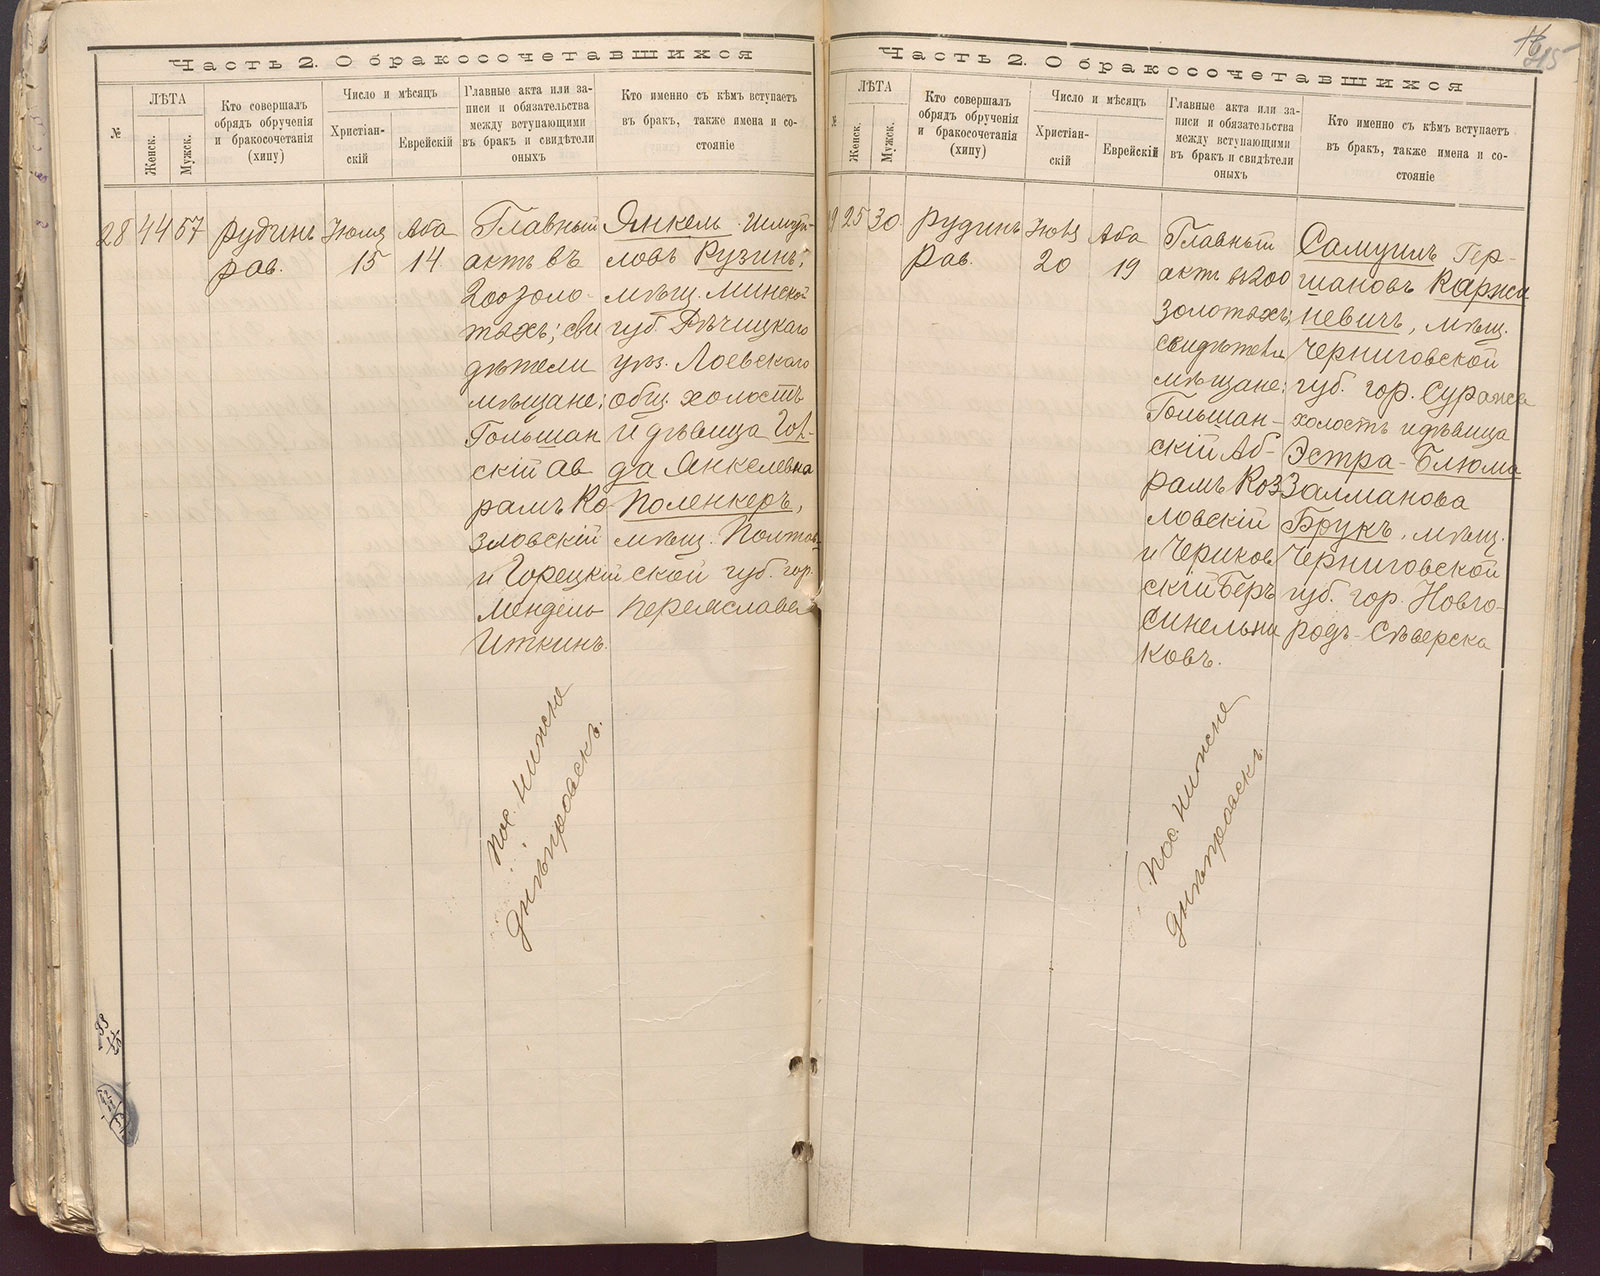 Часть 2. О бракосочетавшихся
№
ЛѢТА
Женск.
Мужск.
Кто совершалъ
обрядъ обрученія
и бракосочетанія
(хипу)
Число и мѣсяцъ
Христіан-
скій
Еврейскій
Главные акта или за-
писи и обязательства
между вступающими
въ бракъ и свидѣтели
оныхъ
Кто именно съ кѣмъ вступаетъ
въ бракъ, также имена и со-
стояніе
28
44
57
Рудинъ
рав.
Іюля
15
Аба
14
Главный
актъ въ
200 золо-
тыхъ; сви
дѣтели
мѣщане:
Гольшан
скій Ав
рамъ Ко
зловскій
и Горецкій
Мендель
Иткинъ.
Янкель Шмуй-
ловъ Рузинъ,
мѣщ. Минской
губ. Рѣчицкаго
уѣз. Лоевскаго
общ. холостъ
и дѣвица Гол-
да Янкелевна
Поленкеръ,
мѣщ. Полтав
ской губ. гор.
Переяслава
пос. Нижне
днѣпровскъ.
Часть 2. О бракосочетавшихся
№
ЛѢТА
Женск.
Мужск.
Кто совершалъ
обрядъ обрученія
и бракосочетанія
(хипу)
Число и мѣсяцъ
Христіан-
скій
Еврейскій
Главные акта или за-
писи и обязательства
между вступающими
въ бракъ и свидѣтели
оныхъ
Кто именно съ кѣмъ вступаетъ
въ бракъ, также имена и со-
стояніе
9
25
30
Рудинъ
Рав.
Іюля
20
Аба
19
Главный
актъ въ 200
золотыхъ;
свидѣтели
мѣщане:
Гольшан-
скій Аб-
рамъ Коз
ловскій
и Чериков
скій Беръ
Синельни
ковъ.
Самуилъ Гер-
шановъ Каржи
невичъ, мѣщ.
Черниговской
губ. гор. Суража
холостъ и дѣвица
Эстра-Блюма
Залманова
Брукъ, мѣщ.
Черниговской
губ. гор. Новго-
родъ-Сѣверска
пос. Нижне
днѣпровскъ.